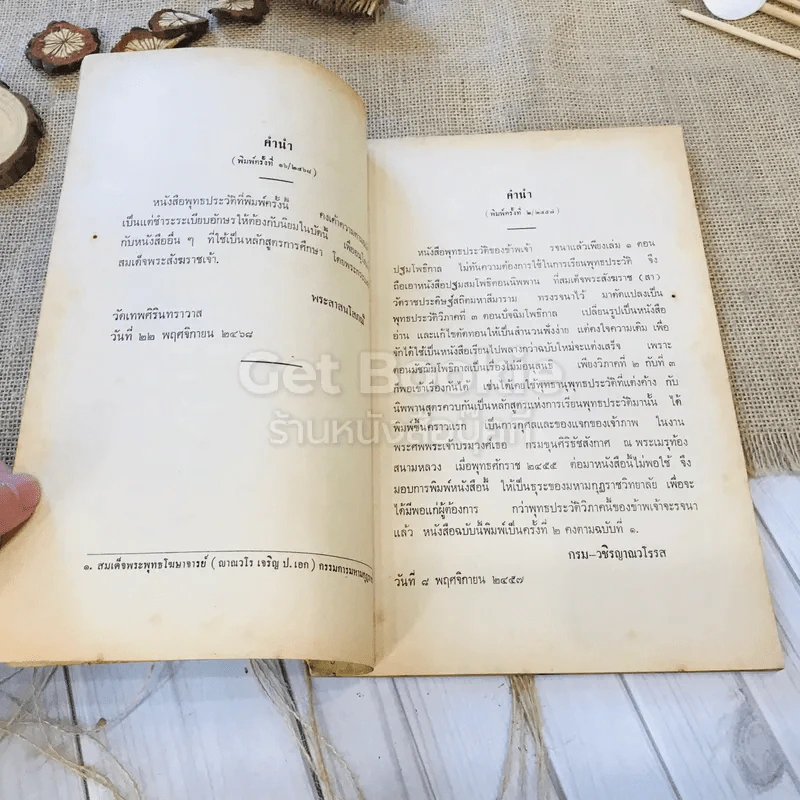 คำนำ
(พิมพ์ครั้งที่ ๑๖/๒๔๖๘)
หนังสือพุทธประวัติที่พิมพ์ครั้งนี้ คงเค้าความตามเดิม
เป็นแต่ชำระระเบียบอักษรให้ต้องกับนิยมในบัดนี้
กับหนังสืออื่น ๆ ที่ใช้เป็นหลักสูตรการศึกษา
สมเด็จพระสังฆราชเจ้า.
พระสาสนโสภณ
วัดเทพศิรินทราวาส
วันที่ ๒๒ พฤศจิกายน ๒๔๖๘
๑. สมเด็จพระพุทธโฆษาจารย์ (ญาณวโร เจริญ ป. เอก) กรรมการมหามกุฏ
คำนำ
(พิมพ์ครั้งที่ ๒/๒๔๕๗)
หนังสือพุทธประวัติของข้าพเจ้า รจนาแล้วเพียงเล่ม ๑ ตอน
ปฐมโพธิกาล ไม่ทันความต้องการใช้ในการเรียนพุทธประวัติ จึง
ถือเอาหนังสือปฐมสมโพธิตอนนิพพาน ที่สมเด็จพระสังฆราช (สา)
วัดราชประดิษฐ์สถิตมหาสีมาราม ทรงรจนาไว้ มาดัดแปลงเป็น
พุทธประวัติวิภาคที่ ๓ ตอนปัจฉิมโพธิกาล เปลี่ยนรูปเป็นหนังสือ
อ่าน และแก้ไขตัดทอนให้เป็นสำนวนฟังง่าย แต่คงใจความเดิม เพื่อ
จักได้ใช้เป็นหนังสือเรียนไปพลางกว่าฉบับใหม่จะแต่งเสร็จ เพราะ
ตอนมัชฌิมโพธิกาลเป็นเรื่องไม่มีอนุสนธิ เพียงวิภาคที่ ๒ กับที่ ๓
ก็พอเข้าเรื่องกันได้ เช่นได้เคยใช้พุทธานุพุทธประวัติที่แต่งค้าง กับ
นิพพานสูตรควบกันเป็นหลักสูตรแห่งการเรียนพุทธประวัติมานั้น ได้
พิมพ์ขึ้นคราวแรก เป็นการกุศลและของแจกของเจ้าภาพ ในงาน
พระศพพระเจ้าบรมวงศ์เธอ กรมขุนศิริธัชสังกาศ ณ พระเมรุท้อง
สนามหลวง เมื่อพุทธศักราช ๒๔๕๕ ต่อมาหนังสือนี้ไม่พอใช้ จึง
มอบการพิมพ์หนังสือนี้ ให้เป็นธุระของมหามกุฏราชวิทยาลัย เพื่อจะ
ได้มีพอแก่ผู้ต้องการ กว่าพุทธประวัติวิภาคนี้ของข้าพเจ้าจะรจนา
แล้ว หนังสือฉบับนี้พิมพ์เป็นครั้งที่ ๒ คงตามฉบับที่ ๑.
กรม-วชิรญาณวโรรส
วันที่ ๘ พฤศจิกายน ๒๔๕๗
Get Bookie
ร้านหนังสือบุ๊คกี้